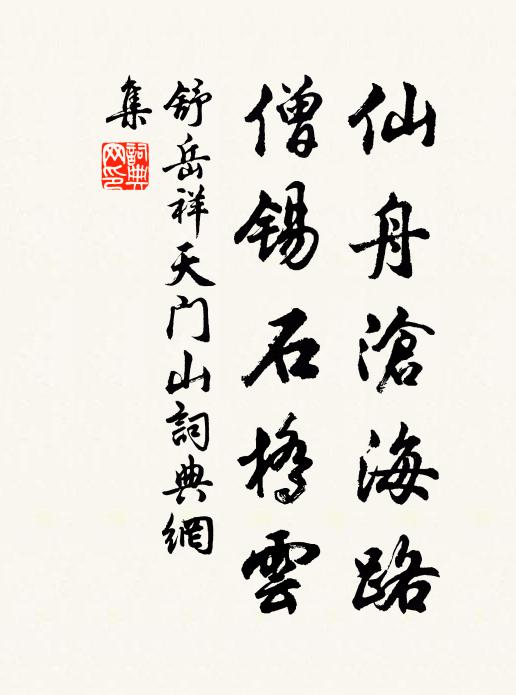 仙舟滄海路
僧錫石橋雲
舒岳祥天门山詞典網
集
詞典网印